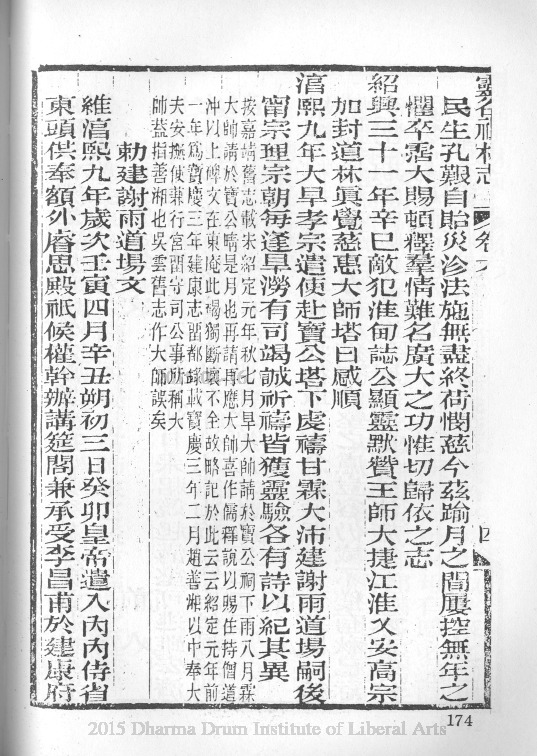 靈谷禪林志 卷六 四
民生孔艱自貽災沴法施無盡終荷憫慈今茲踰月之間屢控無年之
懼卒霑大賜頓釋羣情難名廣大之功惟切歸依之志
紹興三十一年辛巳敵犯淮甸誌公顯靈默贊王師大捷江淮乂安高宗
加封道林眞覺慈惠大師塔曰感順
淳熙九年大旱孝宗遣使赴寶公塔下虔禱甘霖大沛建謝雨道場嗣後
甯宗理宗朝每逢旱澇有司竭誠祈禱皆獲靈驗各有詩以紀其異
按嘉靖舊志載宋紹定元年秋七月旱大師請於寶公祠下雨八月霖
大師請於寶公暘是月也再請再應大師喜作儒釋說以賜住持僧道
沖以上碑文在東庵此碣獨斷壞不全故略記於此云云紹定元年前
一年爲寶慶三年建康志留都錄載寶慶三年二月趙善湘以中奉大
夫安撫使兼行宮留守司公事所稱大
師蓋指善湘也吳雲舊志作大師誤矣
勅建謝雨道場文
維淳熙九年歲次壬寅四月辛丑朔初三日癸卯皇帝遣入內內侍省
東頭供奉額外睿思殿祗候權幹辦講筵閣兼承受李昌甫於建康府
174
2015 Dharma Drum Institute of Liberal Arts